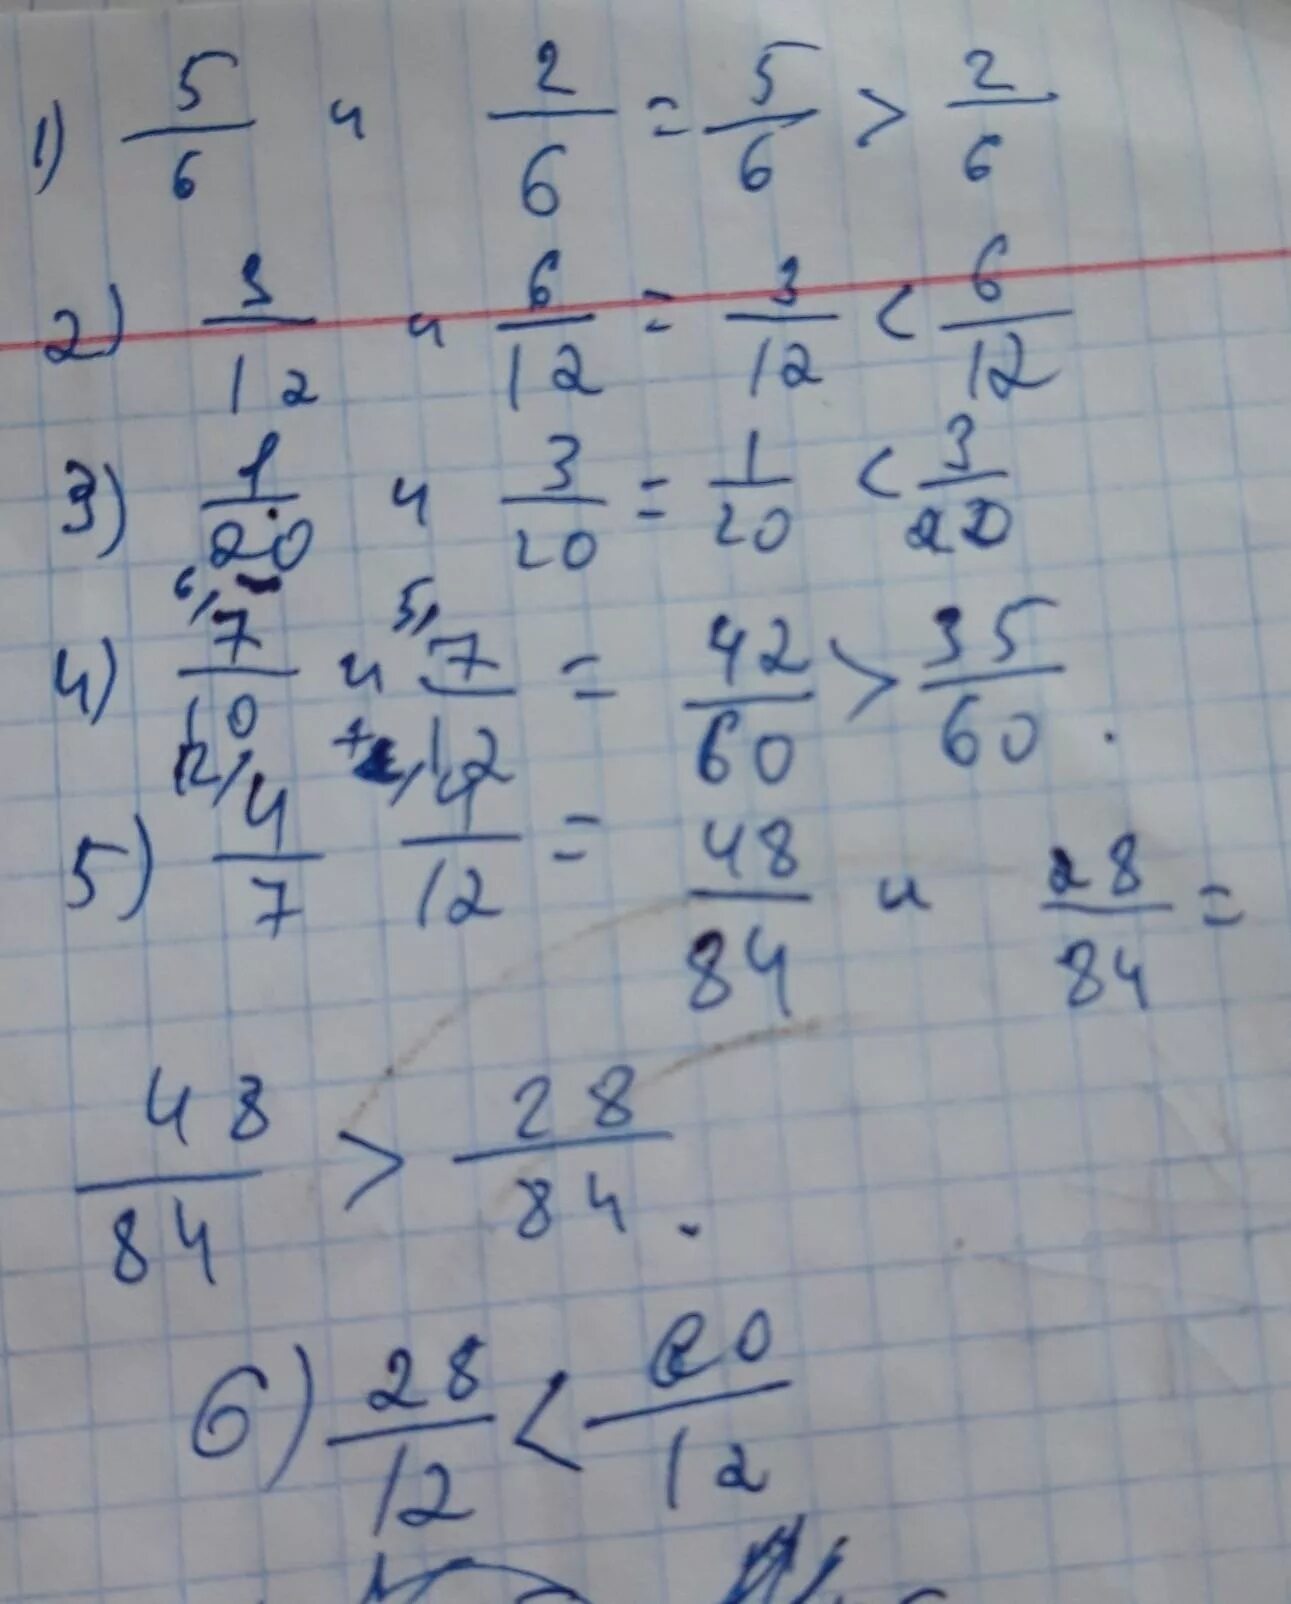 1) 5/6 и 2/6 = 5/6 > 2/6
2) 3/12 и 6/12 = 3/12 < 6/12
3) 1/20 и 3/20 = 1/20 < 3/20
6, 5,
4) 7/10 и 7/12 = 42/60 > 35/60.
12, 7,
5) 4/7 4/12 = 48/84 и 28/84 =
48/84 > 28/84.
6) 28/12 <